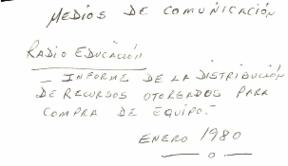 MEDIOS DE COMUNICACIÓN
RADIO EDUCACIÓN
- INFORME DE LA DISTRIBUCIÓN
DE RECURSOS OTORGADOS PARA
COMPRA DE EQUIPO.-
ENERO 1980
— o —